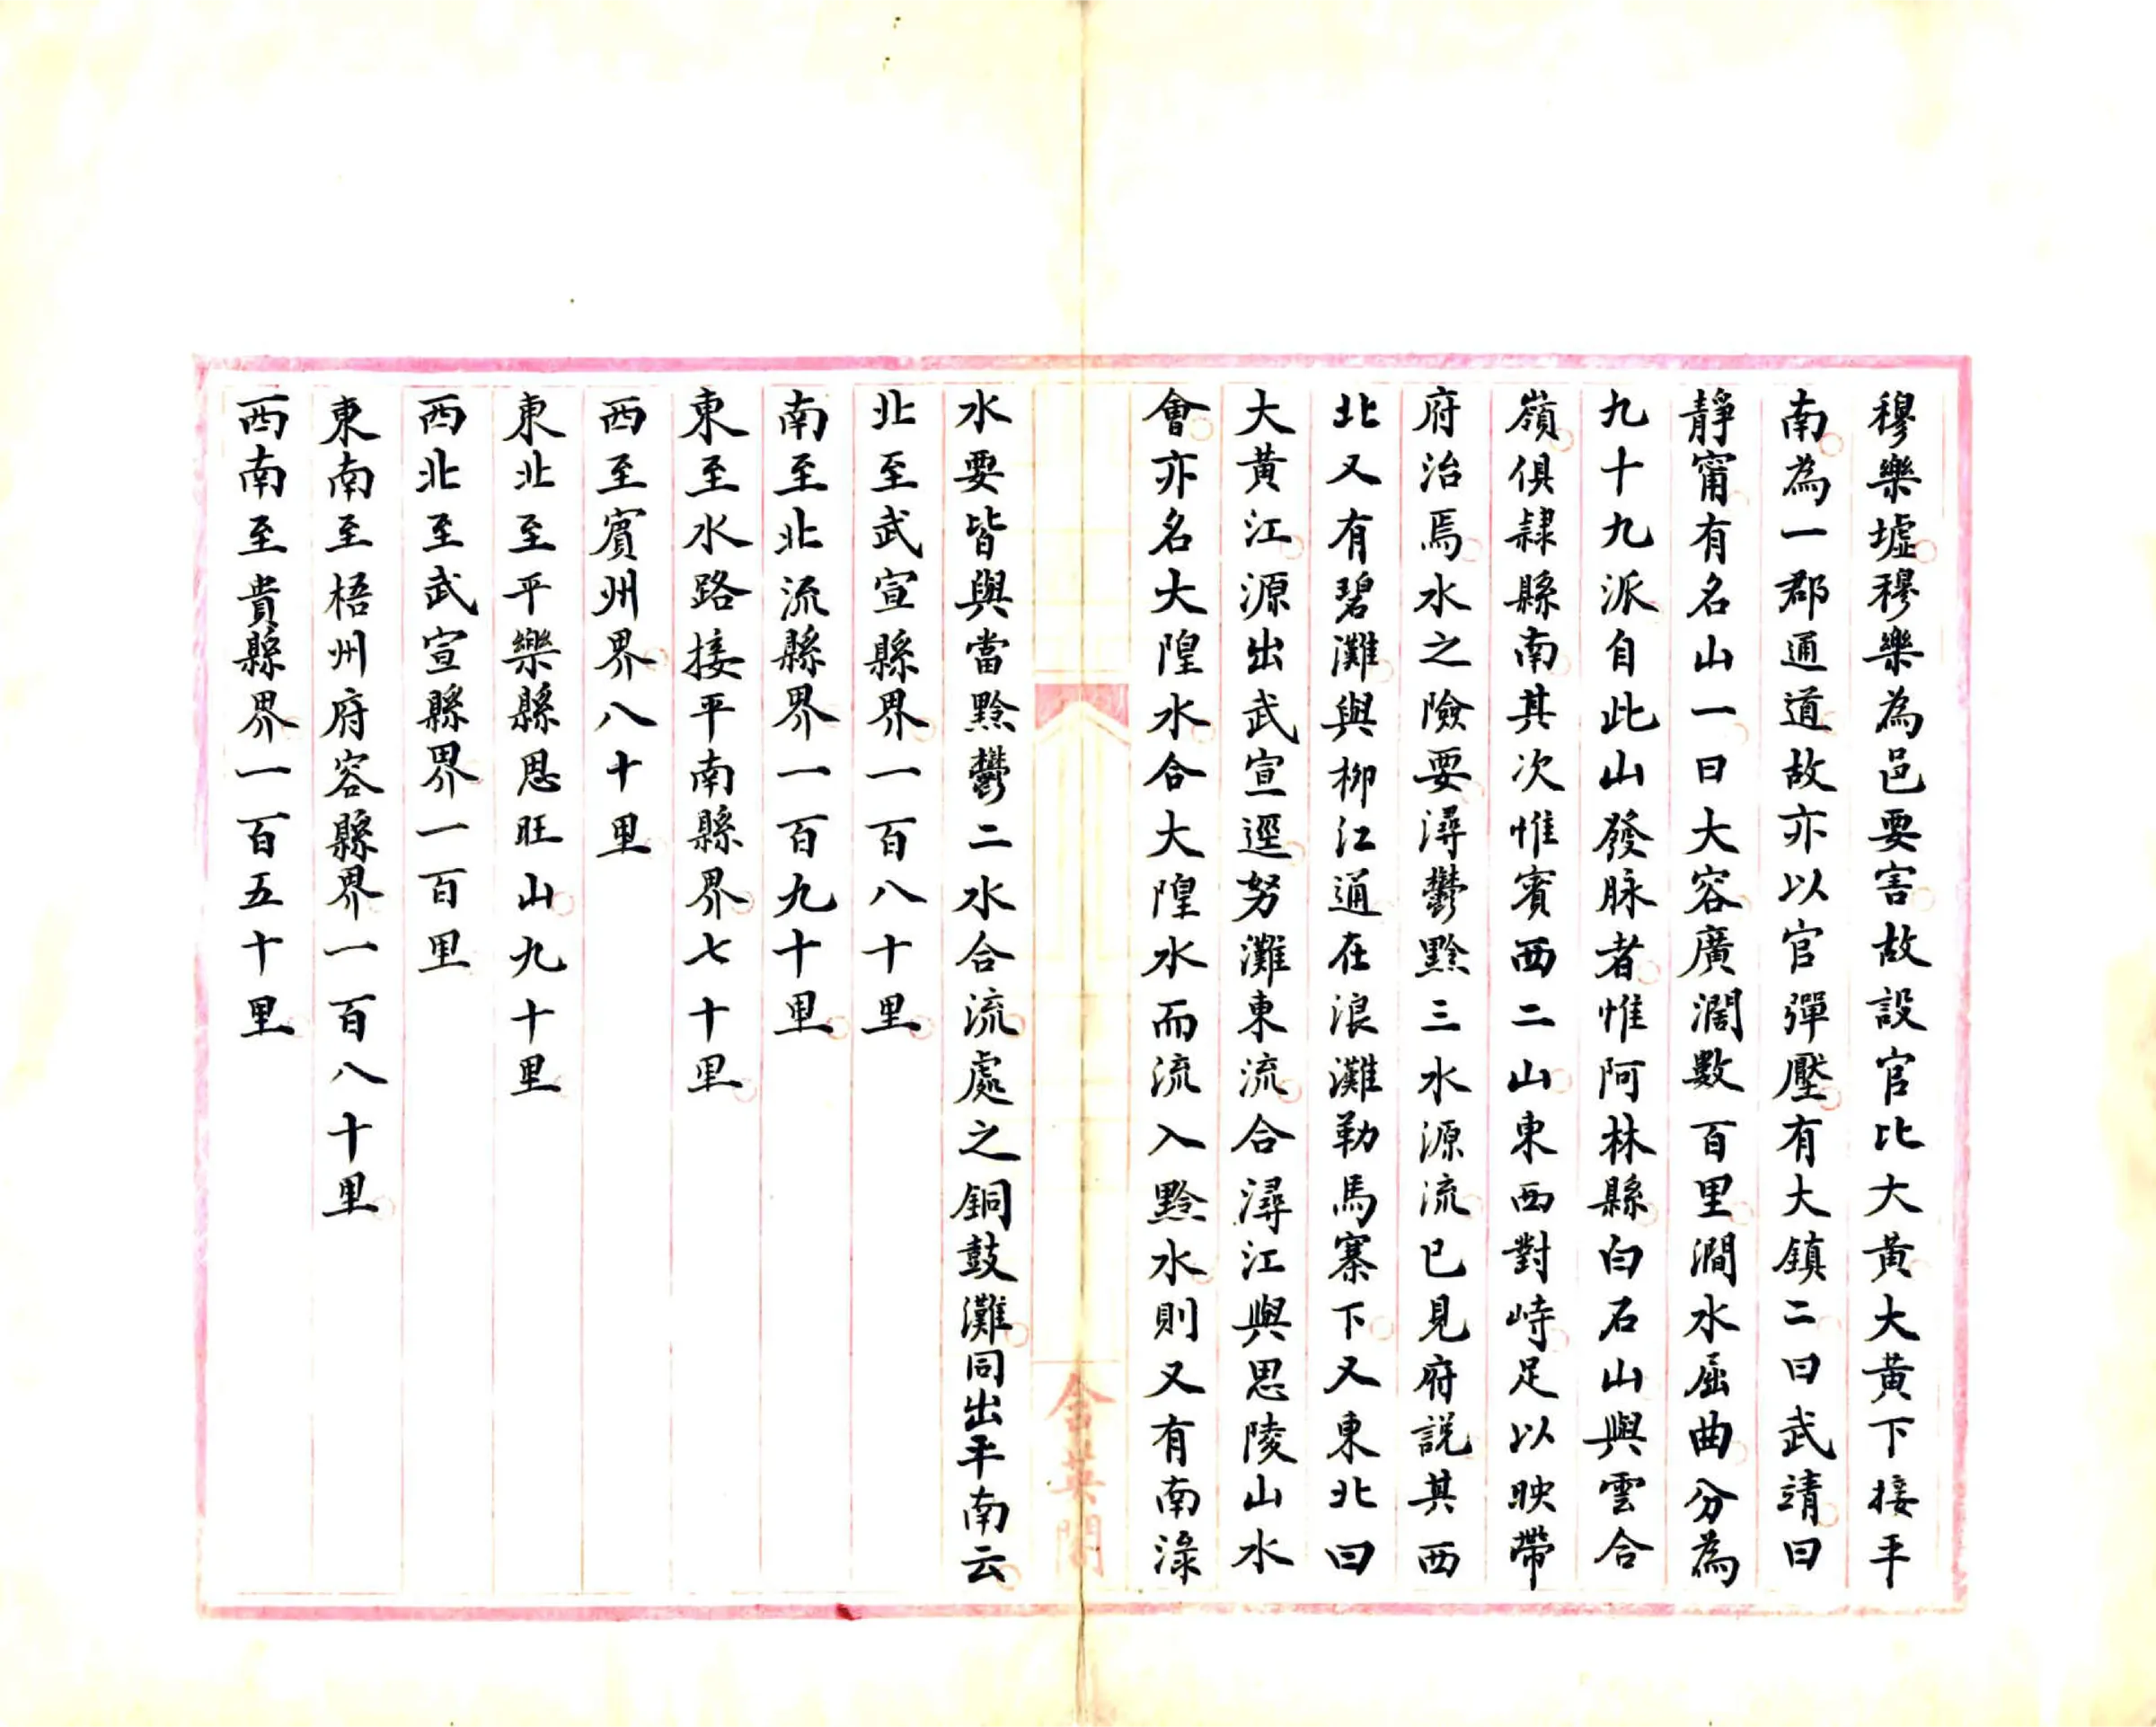 穆樂墟穆樂為邑要害故設官比大黃大黃下接平
南為一郡通道故亦以官彈壓有大鎮二曰武靖曰
靜甯有名山一曰大容廣濶數百里澗水屈曲分為
九十九派自此山發脉者惟阿林縣白石山與雲合
嶺俱隸縣南其次惟賓西二山東西對峙足以映帶
府治焉水之險要潯鬱黔三水源流已見府説其西
北又有碧灘與柳江通在浪灘勒馬寨下又東北曰
大黃江源出武宣逕努灘東流合潯江與思陵山水
會亦名大隍水合大隍水而流入黔水則又有南淥
水要皆與當黔鬱二水合流處之銅鼓灘同出平南云
北至武宣縣界一百八十里
南至北流縣界一百九十里
東至水路接平南縣界七十里
西至賓州界八十里
東北至平樂縣思旺山九十里
西北至武宣縣界一百里
東南至梧州府容縣界一百八十里
西南至貴縣界一百五十里
含英閣